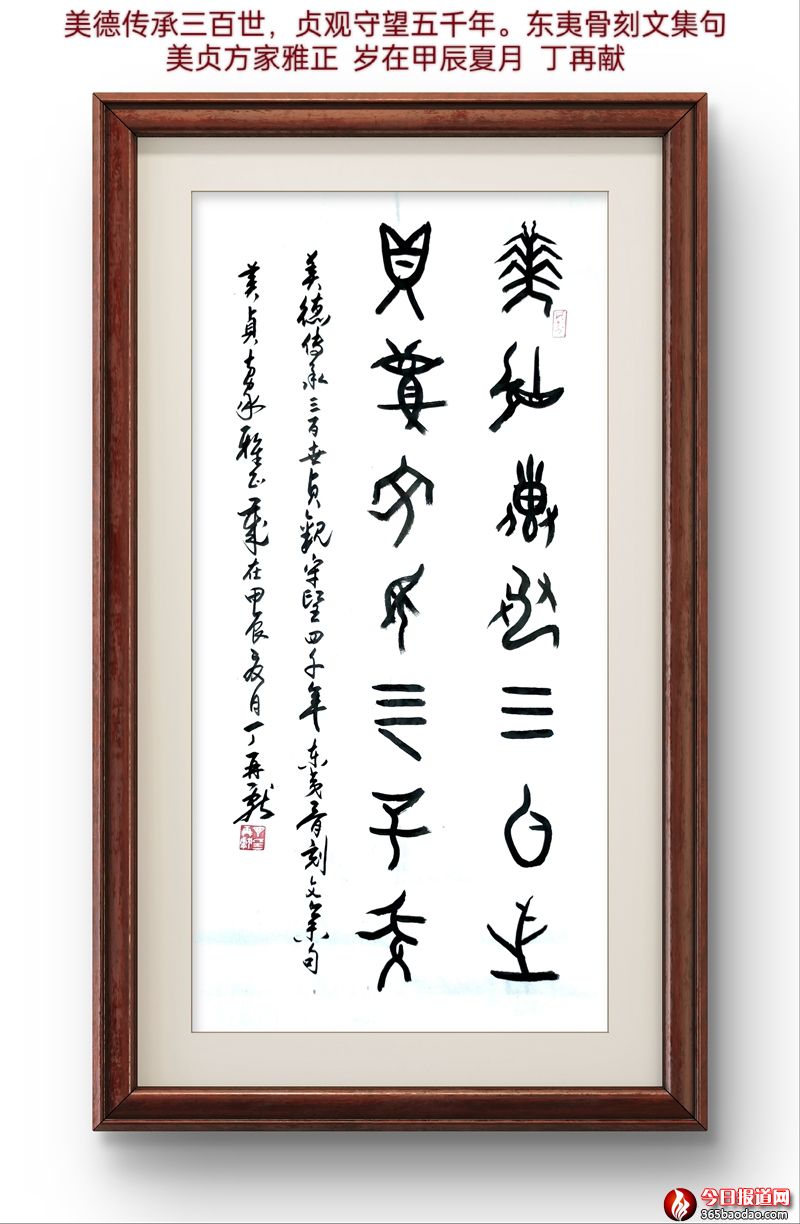 美德传承三百世，贞观守望五千年。东夷骨刻文集句
美贞方家雅正 岁在甲辰夏月 丁再献
美德传承三百世
贞观守望四千年
美德传承三百世贞观守望四千年东夷骨刻文集句
美贞方家雅正岁在甲辰夏月丁再献
今日报道网
365baodao.com